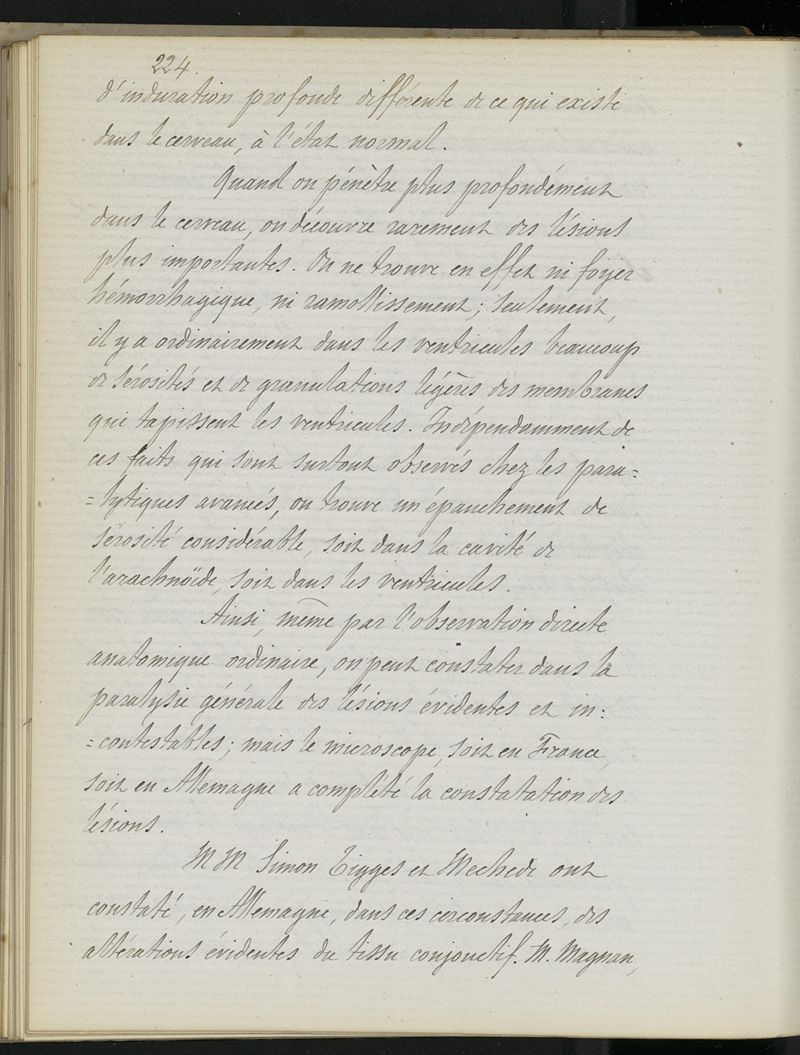 224.
d'induration profonde différente de ce qui existe
dans le cerveau, à l'état normal.
Quand on pénètre plus profondément
dans le cerveau, on découvre rarement des lésions
plus importantes. On ne trouve en effet ni foyer
hémorrhagique, ni ramollissement; seulement,
il y a ordinairement dans les ventricules beaucoup
de sérosités et de granulations légères des membranes
qui tapissent les ventricules. Indépendamment de
ces faits qui sont surtout observés chez les para=
=lytiques avancés, on trouve un épanchement de
sérosité considérable, soit dans la cavité de
l'arachnoïde, soit dans les ventricules.
Ainsi, même par l'observation directe
anatomique ordinaire, on peut constater dans la
paralysie générale des lésions évidentes et in=
=contestables; mais le microscope, soit en France,
soit en Allemagne a complété la constatation des
lésions.
MM Simon Tigges et Mechede ont
constaté, en Allemagne, dans ces circonstances, des
altérations évidentes du tissu conjonctif. M. Magnan,